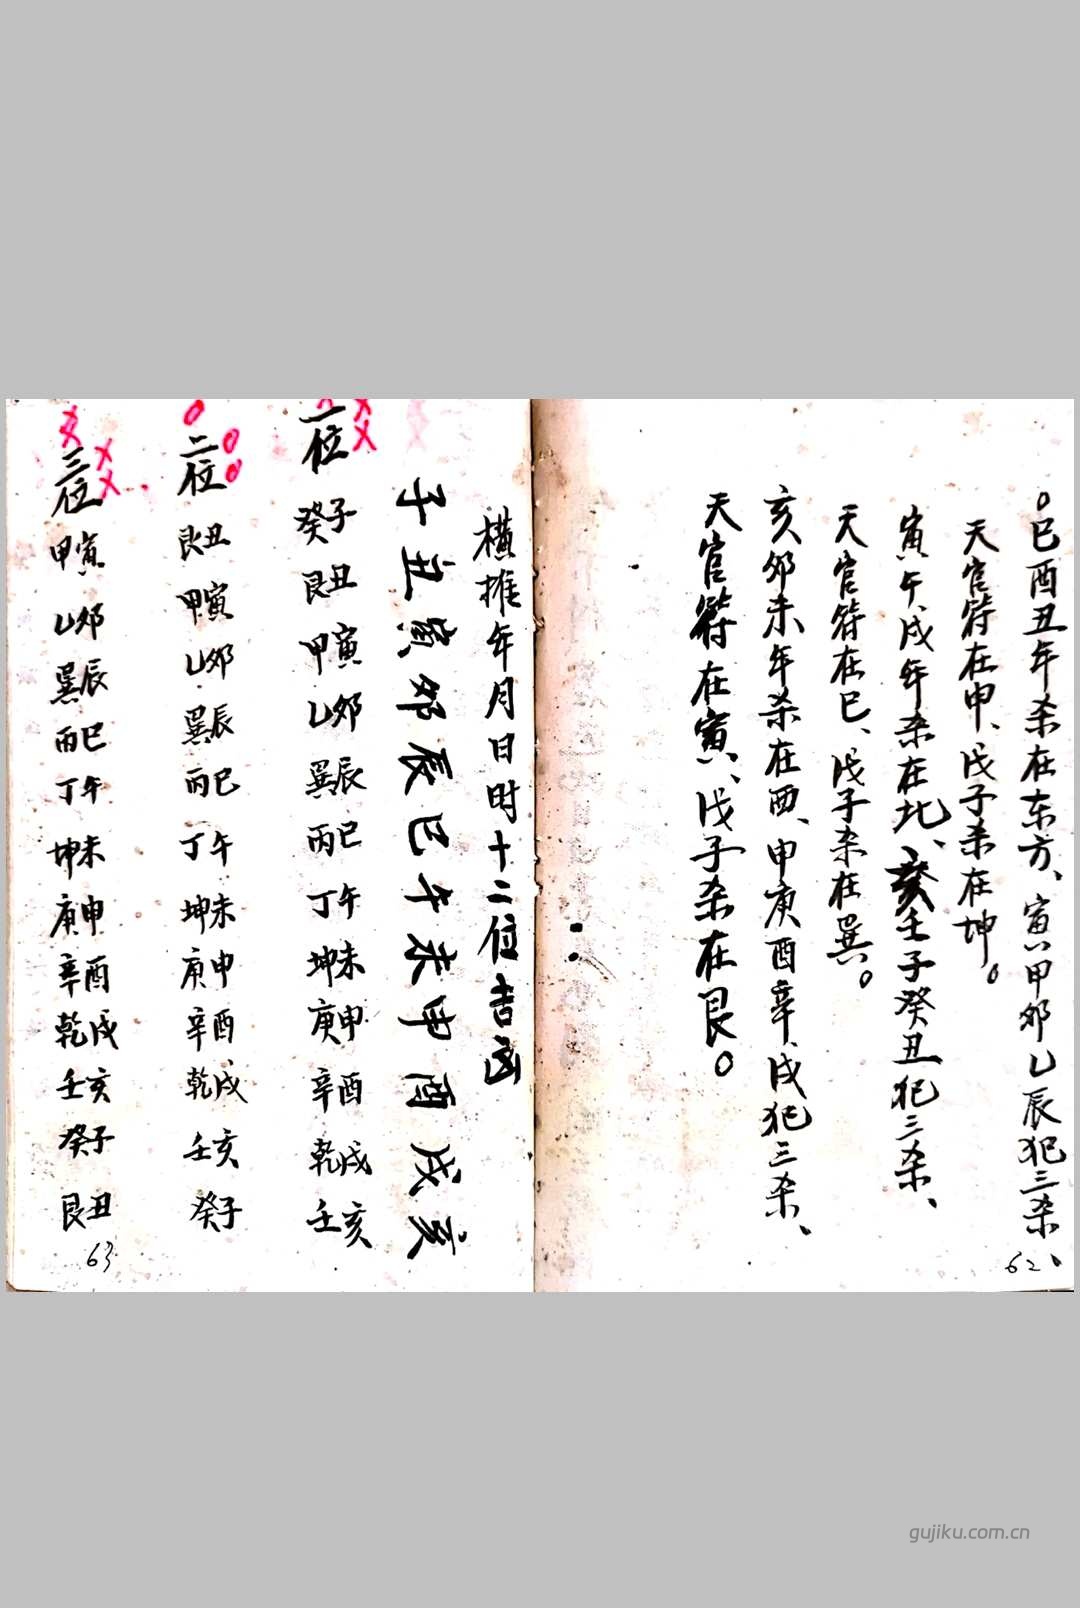 。巳酉丑年杀在东方、寅甲卯乙辰犯三杀、
天官符在申、戊子杀在坤。
寅午戌年杀在北、亥壬子癸丑犯三杀、
天官符在巳、戊子杀在巽。
亥卯未年杀在西、申庚酉辛、戌犯三杀、
天官符在寅、戊子杀在艮。
62
横推年月日时十二位吉凶
子丑寅卯辰巳午未申酉戌亥
一位 癸子 艮丑 甲寅 乙卯 巽辰 丙巳 丁午 坤未 庚申 辛酉 乾戌 壬亥
二位 艮丑 甲寅 乙卯 巽辰 丙巳 丁午 坤未 庚申 辛酉 乾戌 壬亥 癸子
三位 甲寅 乙卯 巽辰 丙巳 丁午 坤未 庚申 辛酉 乾戌 壬亥 癸子 艮丑
63
gujiku.com.cn